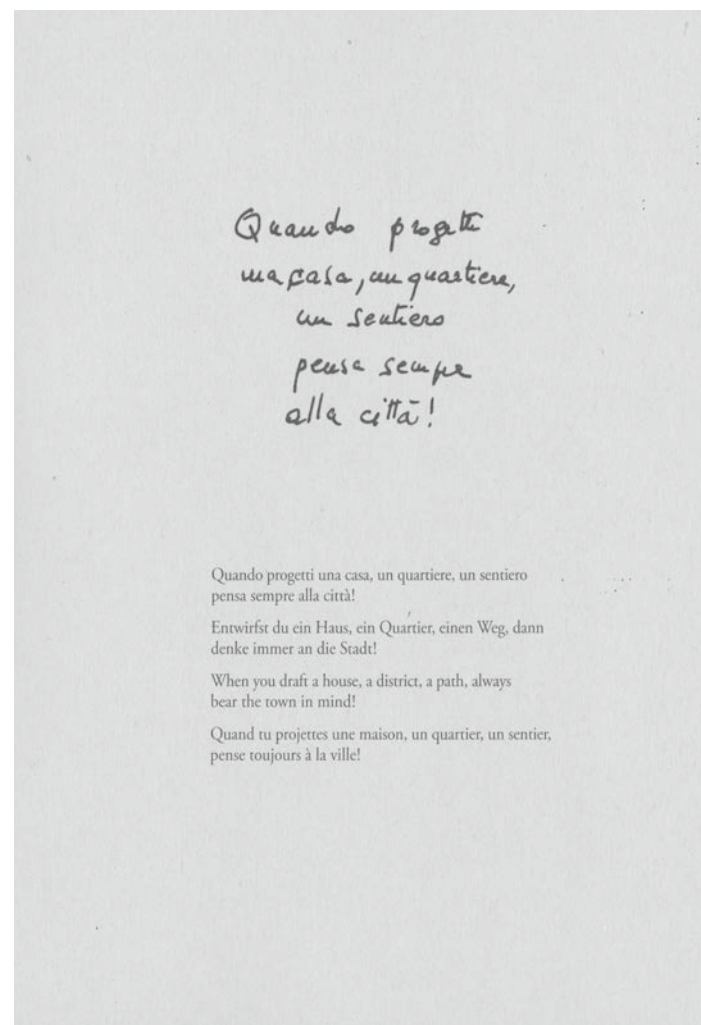 Quando progetti
una casa, un quartiere,
un sentiero
pensa sempre
alla città!
Quando progetti una casa, un quartiere, un sentiero
pensa sempre alla città!
Entwirfst du ein Haus, ein Quartier, einen Weg, dann
denke immer an die Stadt!
When you draft a house, a district, a path, always
bear the town in mind!
Quand tu projettes une maison, un quartier, un sentier,
pense toujours à la ville!